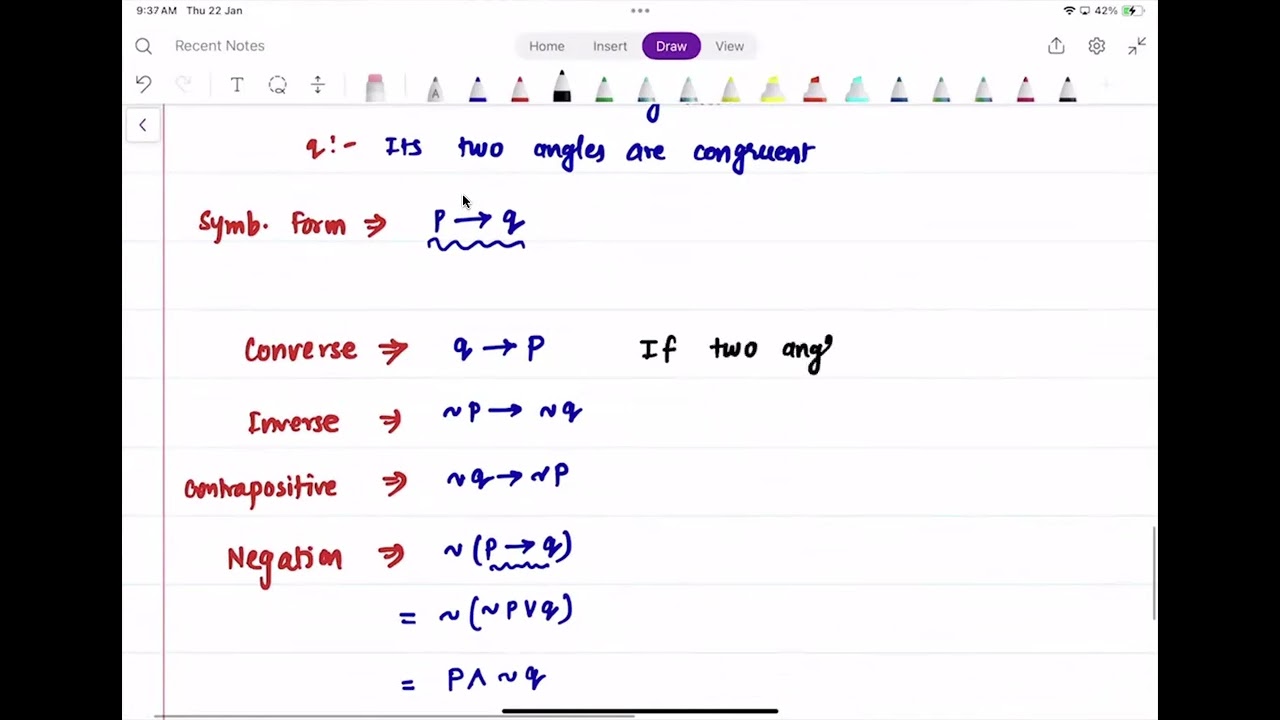 9:37 AM Thu 22 Jan 42%
Recent Notes Home Insert Draw View
T A
q:- Its two angles are congruent
Symb. Form ⇒ P → q
Converse ⇒ q → P If two ang
Inverse ⇒ ~P → ~q
Contrapositive ⇒ ~q → ~P
Negation ⇒ ~(P → q)
= ~(~P V q)
= P Λ ~q